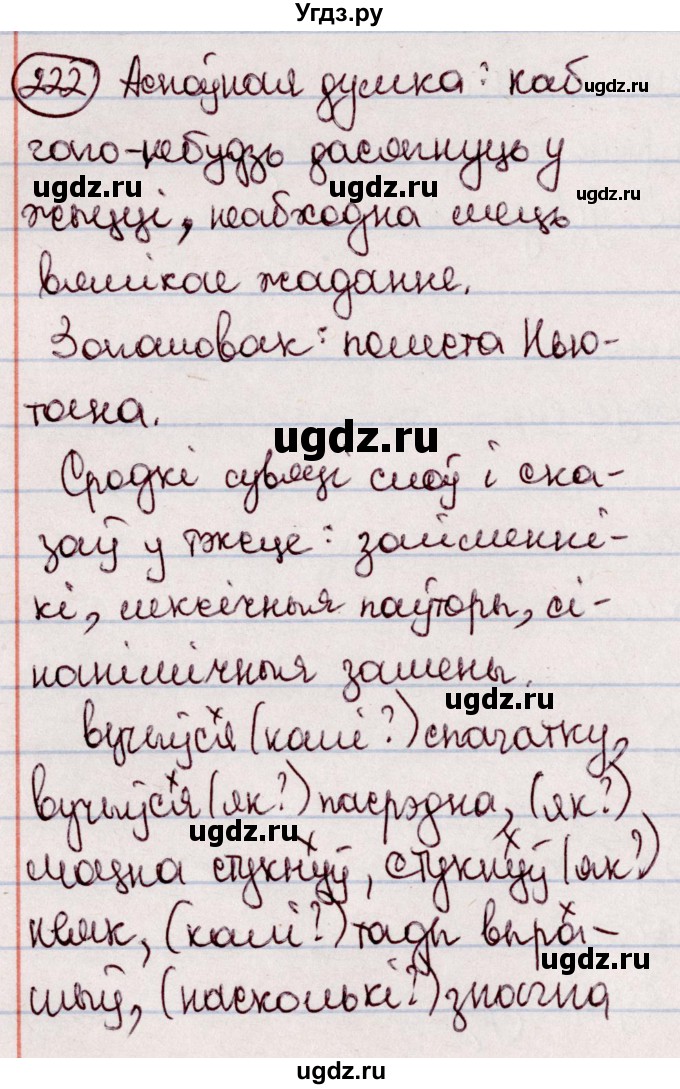 Угдз.ру
222 Асноўная думка: каб
чаго-небудзь дасягнуць у
жыцці, неабходна мець
вялікае жаданне.
Загаловак: помста Нью-
тана.
Сродкі сувязі слоў і ска-
заў у тэксце: займенні-
кі, лексічныя паўторы, сі-
нанімічныя замены.
вучыўся (калі?) спачатку,
вучыўся (як?) пасрэдна, (як?)
моцна стукнуў, стукнуў (як?)
неяк, (калі?) тады выра-
шыў, (насколькі?) значна
ugdz.ru
ugdz.ru
ugdz.ru
ugdz.ru
ugdz.ru
ugdz.ru
ugdz.ru
ugdz.ru
ugdz.ru